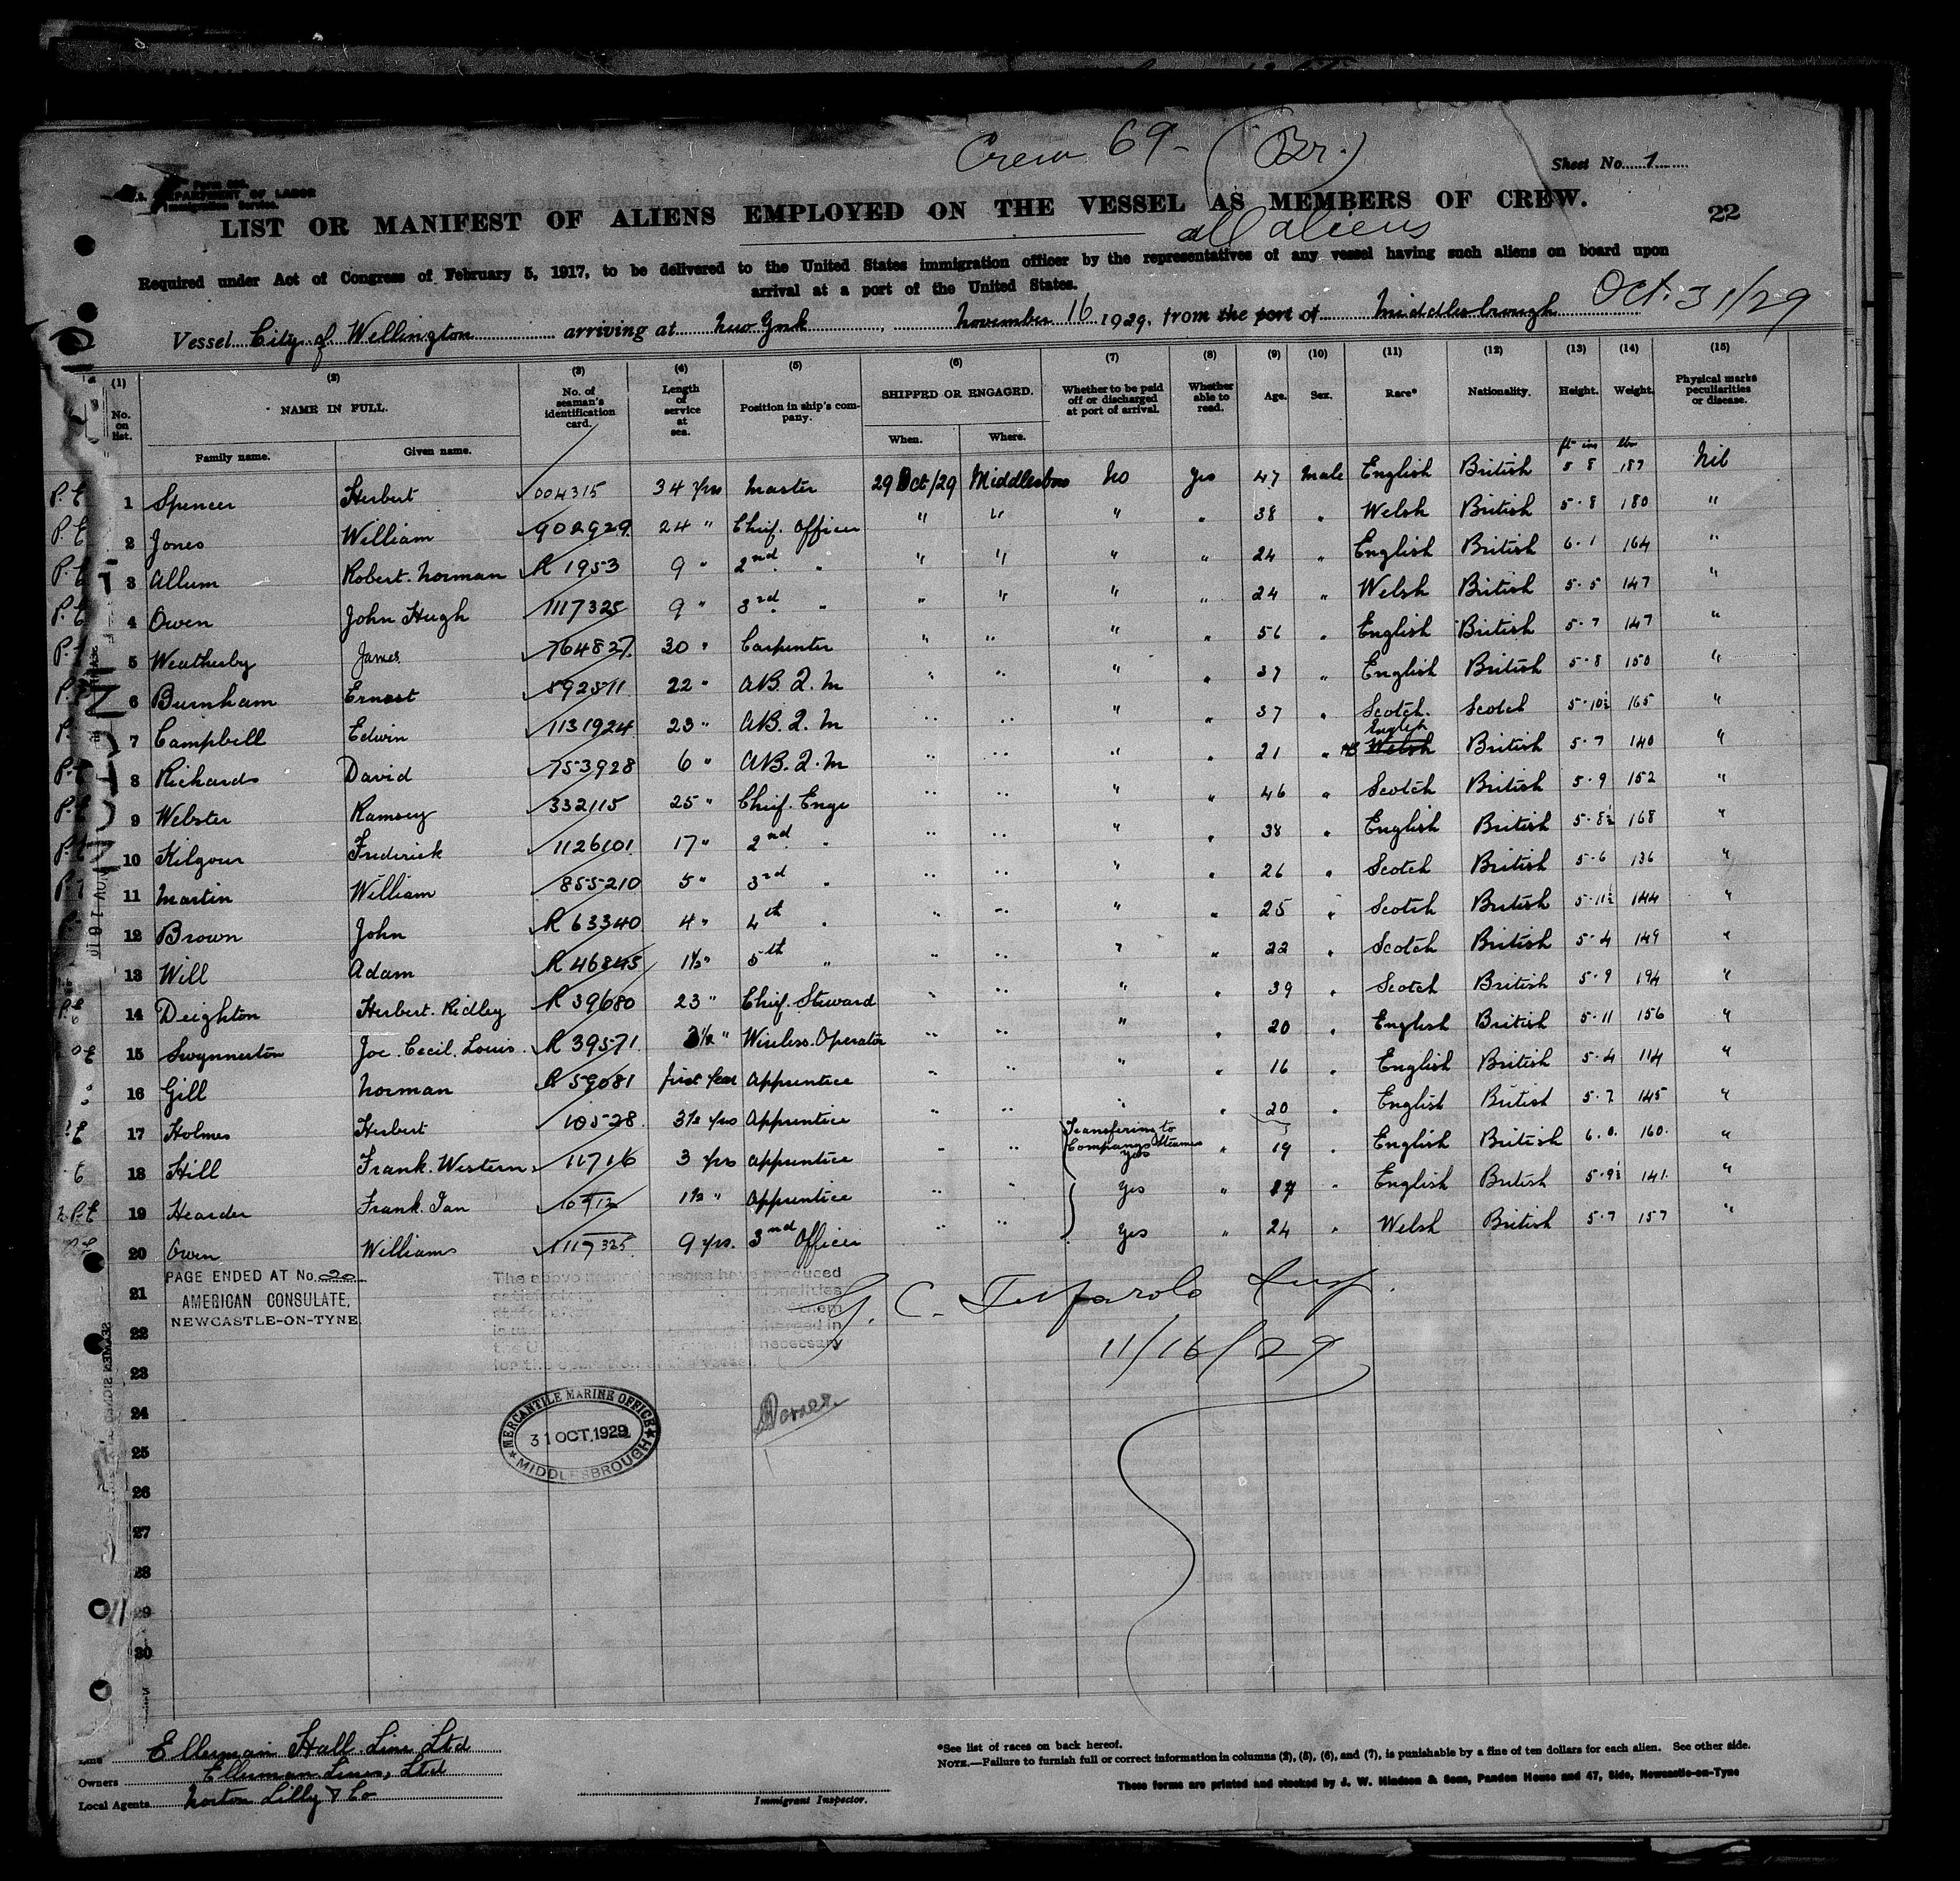 Crew 69 - (Br.)
Sheet No. 1
Form 680
DEPARTMENT OF LABOR
Immigration Service.
LIST OR MANIFEST OF ALIENS EMPLOYED ON THE VESSEL AS MEMBERS OF CREW.
22
all aliens
Required under Act of Congress of February 5, 1917, to be delivered to the United States immigration officer by the representatives of any vessel having such aliens on board upon
arrival at a port of the United States.
Vessel City of Wellington arriving at New York, November 16 1929, from the port of Middlesbrough Oct. 31/29
(1) (2) (3) (4) (5) (6) (7) (8) (9) (10) (11) (12) (13) (14) (15)
No. on list. NAME IN FULL. No. of seaman's identification card. Length of service at sea. Position in ship's company. SHIPPED OR ENGAGED. Whether to be paid off or discharged at port of arrival. Whether able to read. Age. Sex. Race* Nationality. Height. Weight. Physical marks peculiarities or disease.
Family name. Given name. When. Where. ft ins lbs
1 Spencer Herbert 004315 34 yrs Master 29 Oct/29 Middlesbro No Yes 47 Male English British 5 8 187 Nil
2 Jones William 902929 24 " Chief Officer " " " " 38 " Welsh British 5-8 180 "
3 Allum Robert Norman R 1953 9 " 2nd " " " " " 24 " English British 6-1 164 "
4 Owen John Hugh 1117325 9 " 3rd " " " " " 24 " Welsh British 5-5 147 "
5 Weatherby James 764827 30 " Carpenter " " " " 56 " English British 5-7 147 "
6 Burnham Ernest 592511 22 " AB. Q. M " " " " 37 " English British 5-8 150 "
7 Campbell Edwin 1131924 23 " AB. Q. M " " " " 37 " Scotch Scotch 5-10½ 165 "
8 Richards David 753928 6 " AB. Q. M " " " " 21 " English Welsh British 5-7 140 "
9 Webster Ramsey 332115 25 " Chief Enge " " " " 46 " Scotch British 5-9 152 "
10 Kilgour Frederick 1126101 17 " 2nd " " " " " 38 " English British 5-8½ 168 "
11 Martin William 855210 5 " 3rd " " " " " 26 " Scotch British 5-6 136 "
12 Brown John R 63340 4 " 4th " " " " " 25 " Scotch British 5-11½ 144 "
13 Will Adam R 46845 1½ " 5th " " " " " 22 " Scotch British 5-4 149 "
14 Deighton Herbert Ridley R 39680 23 " Chief Steward " " " " 39 " Scotch British 5-9 194 "
15 Swynnerton Joe Cecil Louis R 39571 3½ " Wireless Operator " " " " 20 " English British 5-11 156 "
16 Gill Norman R 59081 first year Apprentice " " " " 16 " English British 5-4 114 "
17 Holmes Herbert 10528 3½ yrs Apprentice " " " " 20 " English British 5-7 145 "
18 Hill Frank Western 11716 3 yrs Apprentice " " Transferring to Companys Steamer Yes " 19 " English British 6.0. 160. "
19 Hearder Frank Ian 1½ " Apprentice " " Yes " " English British 5-9½ 141. "
20 Owen Williams 1117325 9 yrs. 3nd Officer " " Yes " 24 " Welsh British 5-7 157 "
21
22
23
24
25
26
27
28
29
30
PAGE ENDED AT No. 20
AMERICAN CONSULATE,
NEWCASTLE-ON-TYNE
The above named persons have produced
the
necessary
for the operation of the vessel.
11/16/29
MERCANTILE MARINE OFFICE
31 OCT. 1929
MIDDLESBROUGH
Line Ellerman Hall Line Ltd
Owners Ellerman Lines, Ltd
Local Agents Norton Lilly & Co
Immigrant Inspector.
*See list of races on back hereof.
NOTE.—Failure to furnish full or correct information in columns (2), (5), (6), and (7), is punishable by a fine of ten dollars for each alien. See other side.
These forms are printed and stocked by J. W. Hindson & Sons, Pandon House and 47, Side, Newcastle-on-Tyne